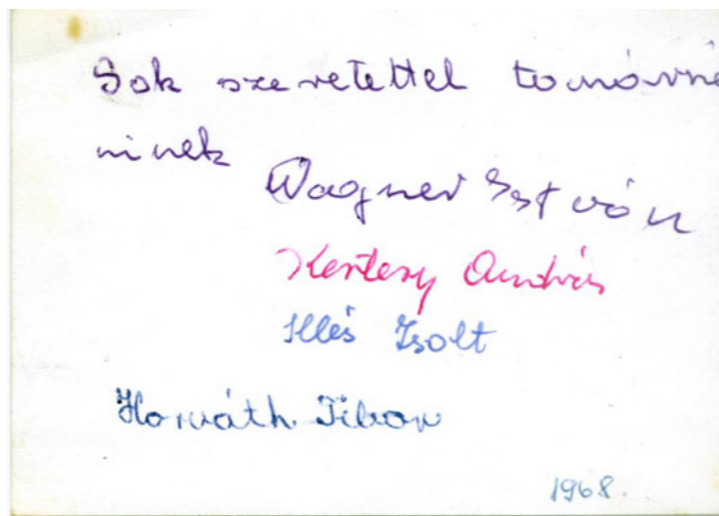 Sok szeretettel tanárné
ninek
Wagner István
Kertesy András
Illés Zsolt
Horváth Tibor
1968.